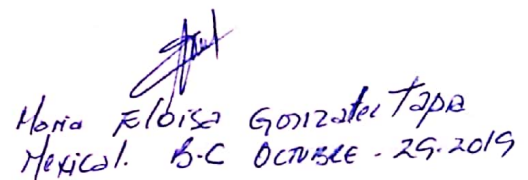 Maria Eloisa Gonzalez Tapia
Mexical. B.C OCTUBRE - 29-2019